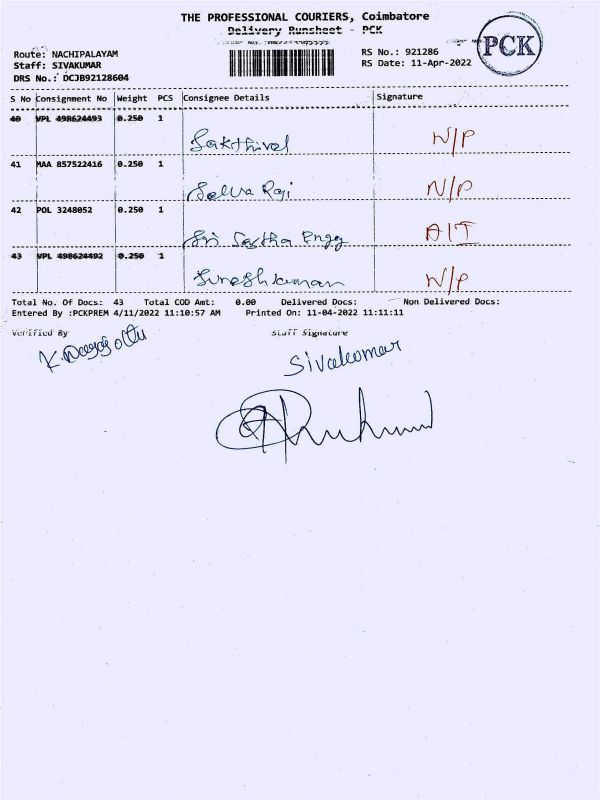 THE PROFESSIONAL COURIERS, Coimbatore
Delivery Runsheet - PCK
PCK
Route: NACHIPALAYAM
Staff: SIVAKUMAR
DRS No.: DCJB92128604
RS No.: 921286
RS Date: 11-Apr-2022
S No Consignment No Weight PCS Consignee Details Signature
40 VPL 498624493 0.250 1
Sakthivel N/P
41 MAA 857522416 0.250 1
Selva Raj N/P
42 POL 3248052 0.250 1
Sri Sastha Engg A/T
43 VPL 498624492 0.250 1
Sureshkumar N/P
Total No. Of Docs: 43 Total COD Amt: 0.00 Delivered Docs: Non Delivered Docs:
Entered By :PCKPREM 4/11/2022 11:10:57 AM Printed On: 11-04-2022 11:11:11
Verified By Staff Signature
Sivakumar